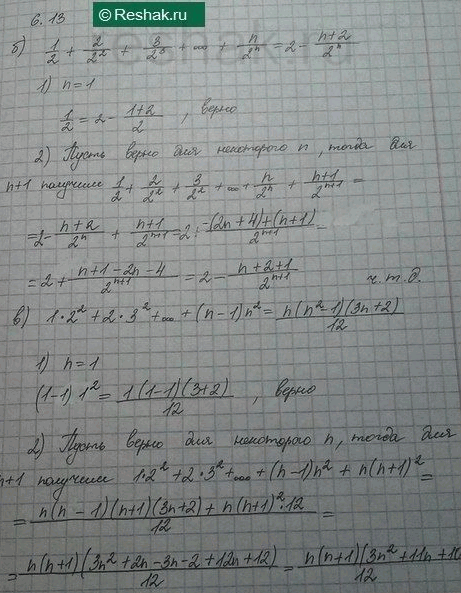 Reshak.ru
6.13
б) 1/2 + 2/2² + 3/2³ + ... + n/2ⁿ = 2 - (n+2)/2ⁿ
1) n=1
1/2 = 2 - (1+2)/2 , верно
2) Пусть верно для некоторого n, тогда для
n+1 получим 1/2 + 2/2² + 3/2² + ... + n/2ⁿ + (n+1)/2ⁿ⁺¹ =
= 2 - (n+2)/2ⁿ + (n+1)/2ⁿ⁺¹ = 2 + (-(2n+4)+(n+1))/2ⁿ⁺¹ =
= 2 + (n+1-2n-4)/2ⁿ⁺¹ = 2 - (n+2+1)/2ⁿ⁺¹ ч.т.д.
в) 1·2² + 2·3² + ... + (n-1)n² = n(n²-1)(3n+2)/12
1) n=1
(1-1)1² = 1(1-1)(3+2)/12 , верно
2) Пусть верно для некоторого n, тогда для
n+1 получим 1·2² + 2·3² + ... + (n-1)n² + n(n+1)² =
= (n(n-1)(n+1)(3n+2) + n(n+1)²·12)/12 =
= n(n+1)(3n²+2n-3n-2+12n+12)/12 = n(n+1)(3n²+11n+10